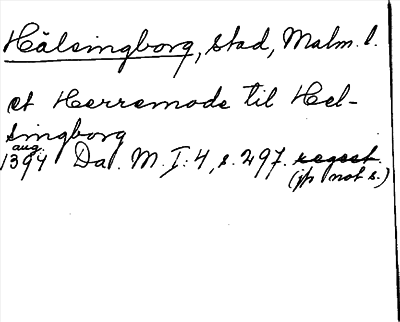 Hälsingborg, stad, Malm. l.
et Herremode til Hel-
singborg
aug.
1394 Da. M. I:4, s. 297. regest.
(jfr not s.)